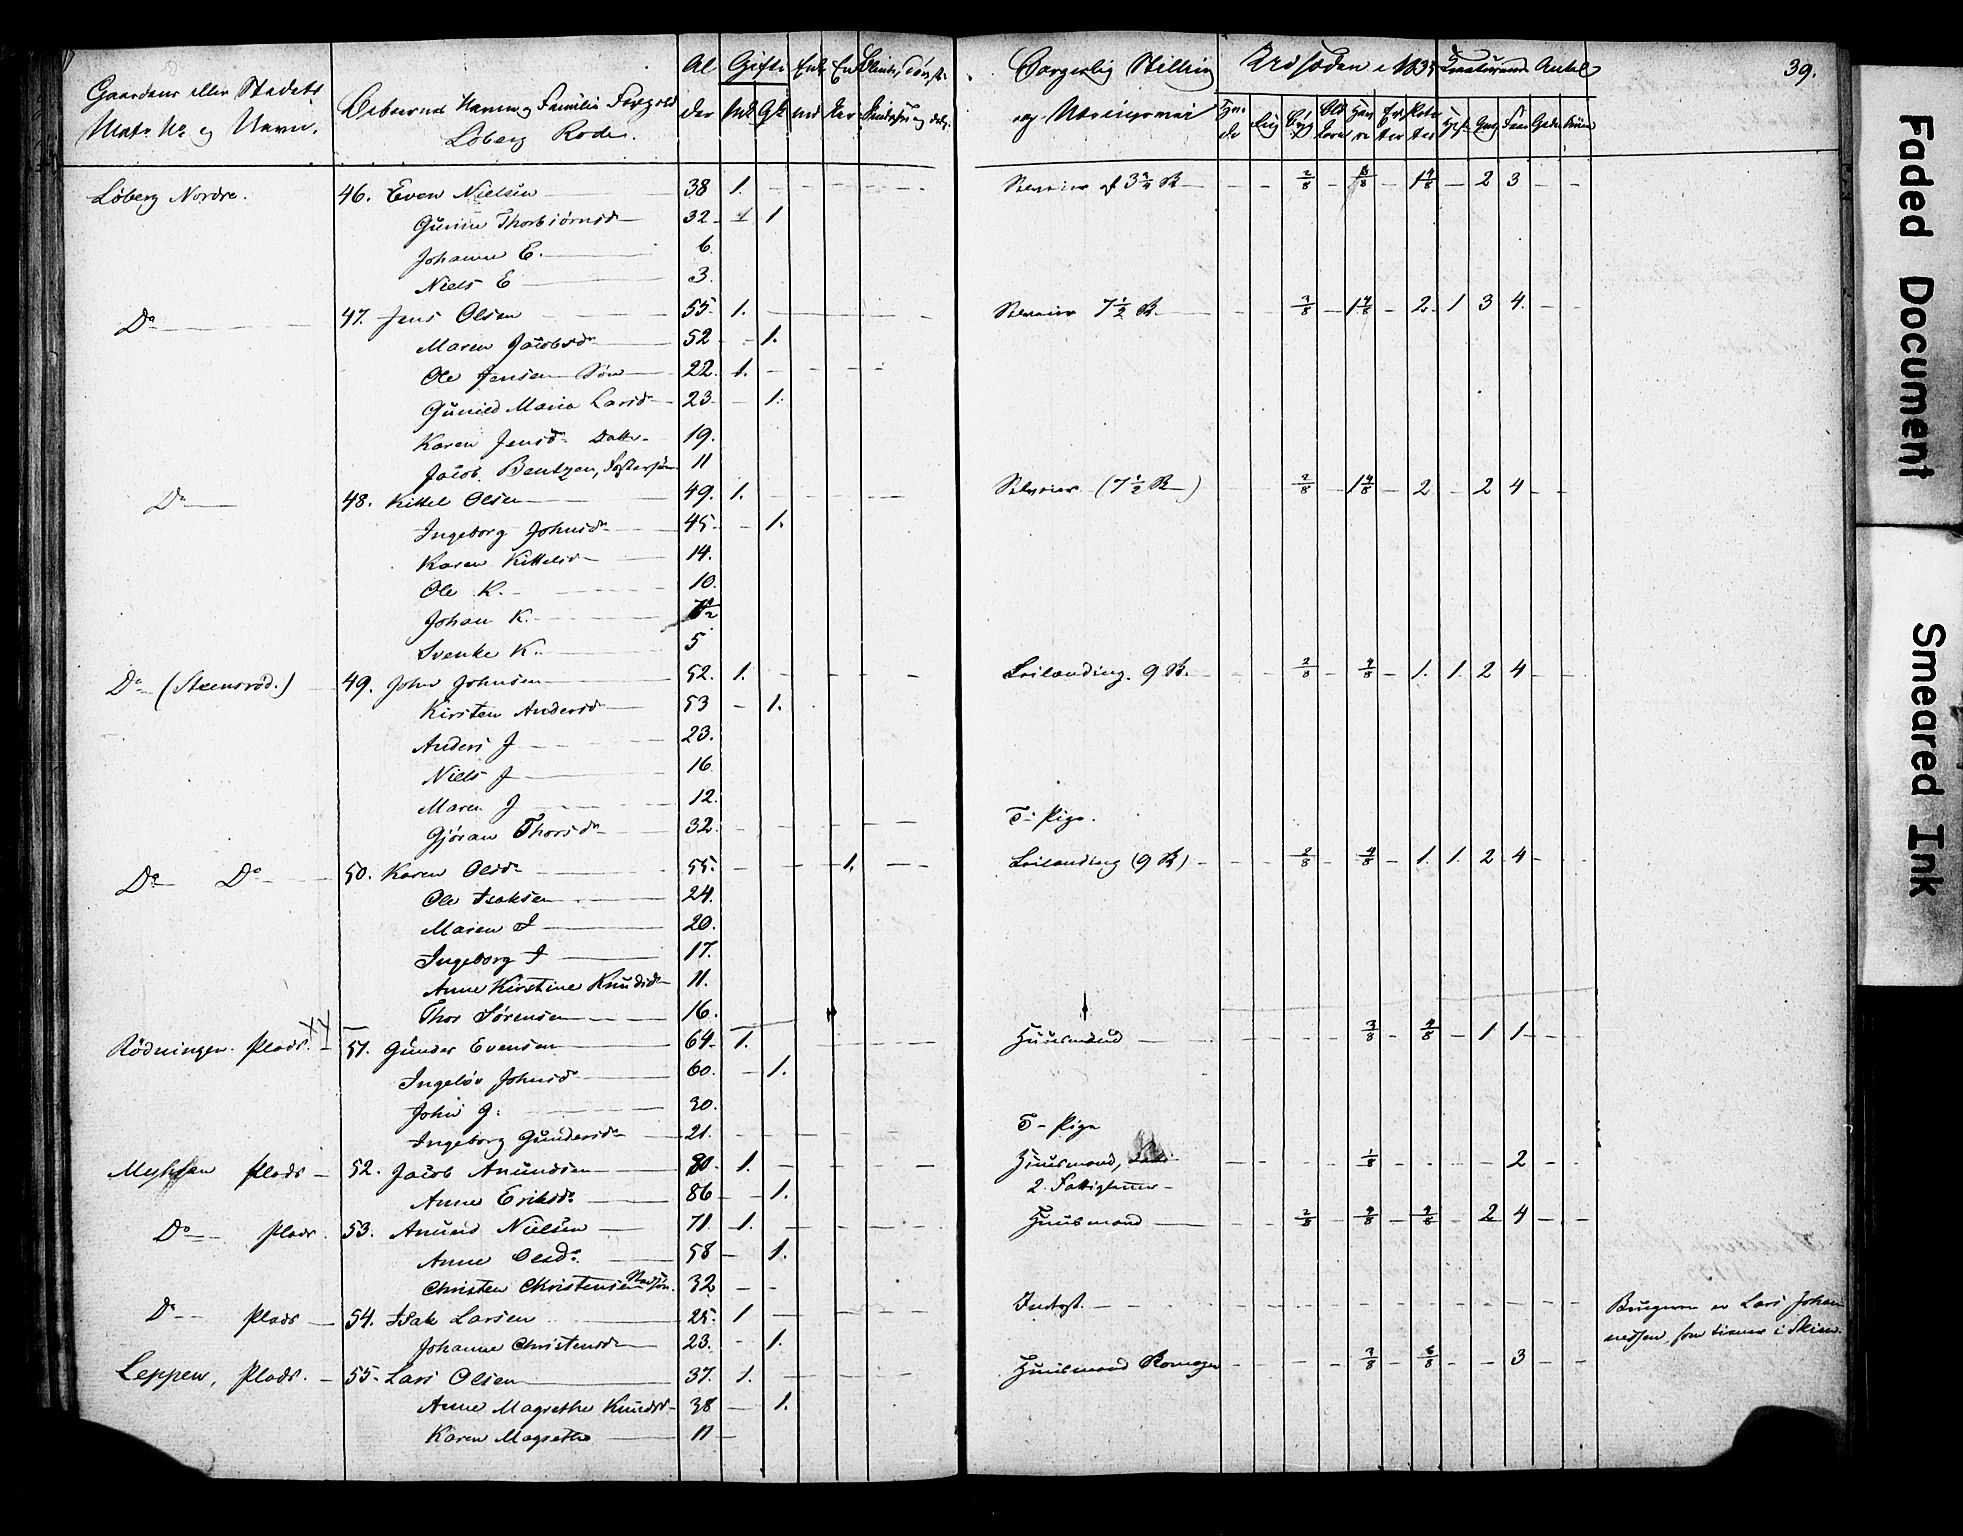 Gaardens eller Stedets Matr No og Navn. | Beboernes Navn og Familie Forhold Löberg Rode. | Al der | Gifte Mk Qk | Enke md | En ker | 39.
Borgerlig Stilling og Næringsvei | Udsæden i 1835 | Creaturenes Antal
Löberg Nordre. 46. Even Nielsen 38 1. Selveier af 3 3/4 R 2/8 1 4/8 2 3
Gunne Thorbiörnsd 32 1
Johanne E. 6
Niels E 3.
Do 47. Jens Olsen 55. 1. Selveier 7 1/2 R. 3/8 1 4/8 2. 1 3 4.
Maren Jacobsd 52 1.
Ole Jensen Sön 22. 1.
Gunild Maria Larsd 23 1.
Karen Jensd. Datter 19.
Jacob Bentzen, Fostersön 11
Do 48. Kittel Olsen 49. 1. Selveier (7 1/2 R) 2/8 1 4/8 2 2 4
Ingeborg Johnsd 45. 1.
Karen Kittelsd 14.
Ole K. 10.
Johan K. 7 1/2
Svenke K. 5
Do (Steensröd.) 49. John Johnsen 52. 1. Leilænding. 9 R. 2/8 4/8 1. 1. 2 4
Kirsten Andersd 53 1.
Anders J 23.
Niels J 16
Maren J 12.
Gjöran Thorsd 32. T. Pige.
Do Do 50. Karen Olsd 55. 1. Leilænding (9 R) 2/8 4/8 1. 1. 2 4
Ole Isaksen 24.
Maren I 20.
Ingeborg I 17.
Anne Kirstine Knudsd 11.
Thor Sörensen 16.
Rödningen Plads. 51. Gunder Evensen 64. 1. Huusmand 3/8 4/8 1 1
Ingeløv Johnsd 60. 1.
John G. 30.
Ingeborg Gundersd 21. T. Pige
Plads 52. Jacob Anundsen 80. 1. Huusmand, 1/8 2
Anne Eriksd. 86 1. 2. Fattiglemmer
Do Plads 53. Anund Nielsen 71. 1. Huusmand 2/8 4/8 4/8 2 4
Anne Olsd. 58 1.
Christen Christensen Stedsön. 32
Do Plads 54. Isak Larsen 25. 1 Inderst. Brugeren er Lars Johan
Johanne Christensd 23. 1. nessen, som tiener i Skien.
Leppen, Plads. 55. Lars Olsen 37. 1. Huusmand 3/8 6/8 3
Anne Magrethe Knudsd 38 1.
Karen Magrethe 11
Faded Document
Smeared Ink